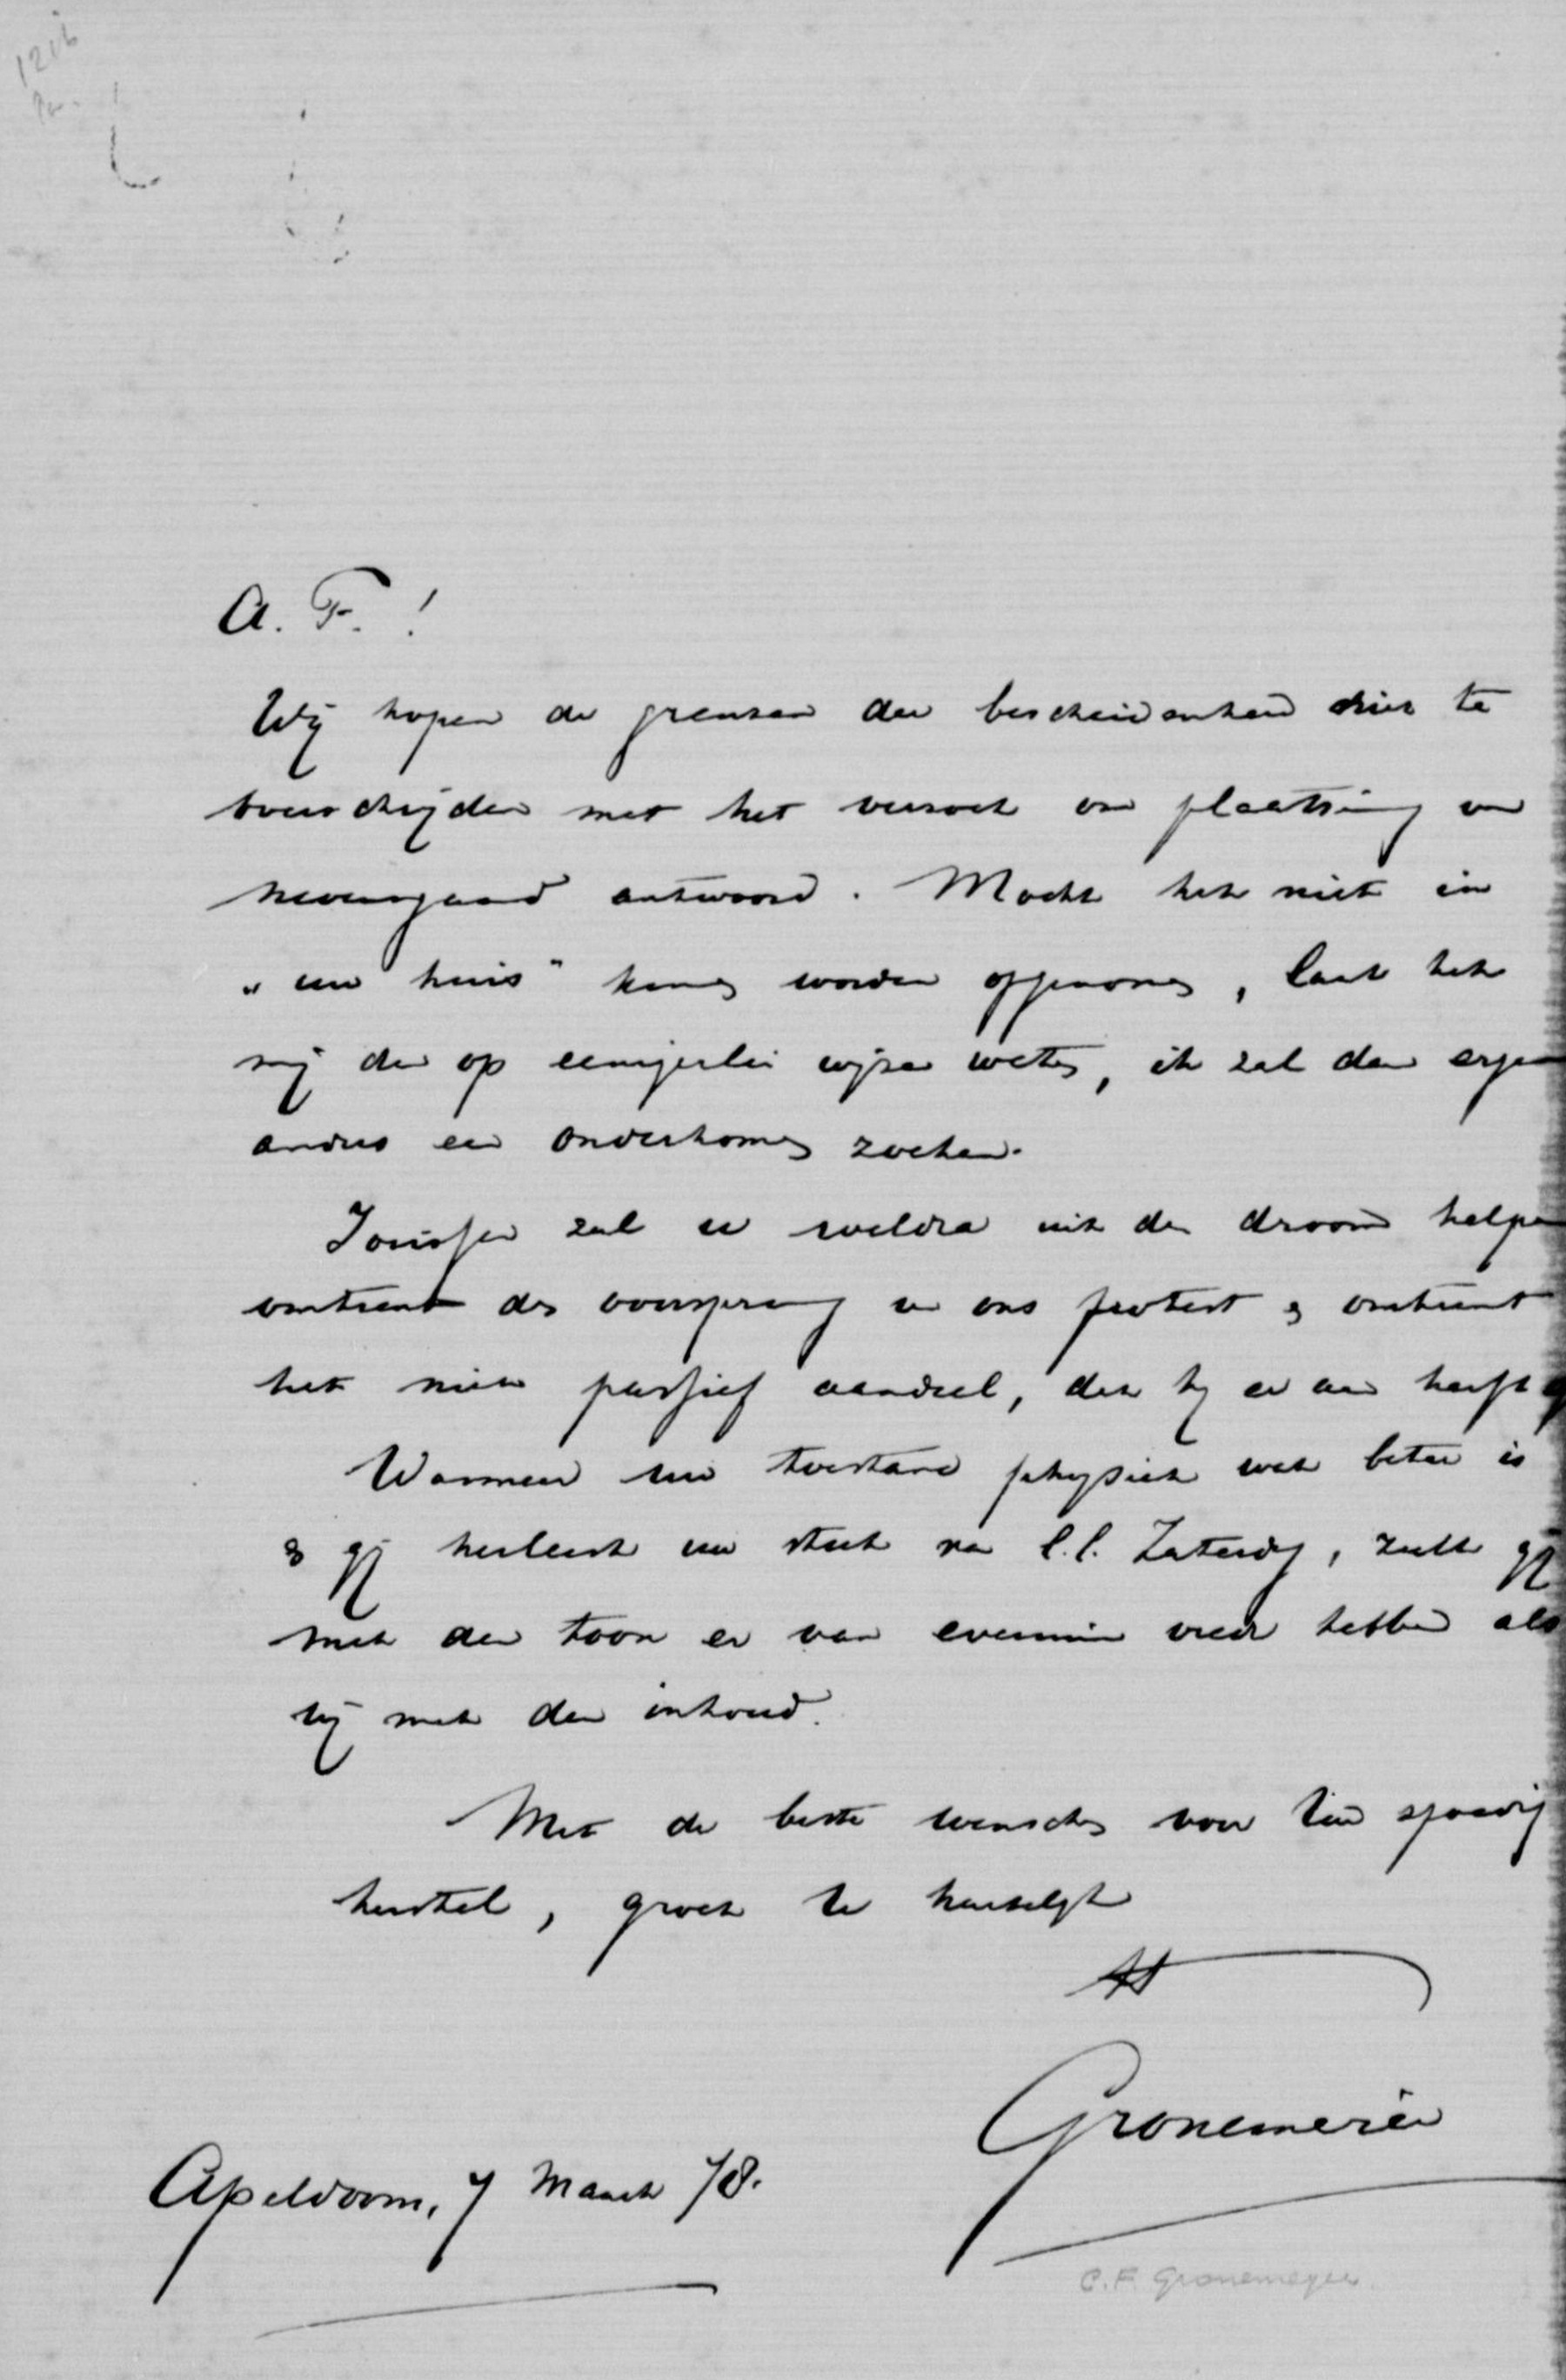 A. F. !
Wij hopen de grenzen der bescheidenheid niet te
overschrijden met het verzoek om plaatsing van
nevensgaand antwoord. Mocht het niet in
„uw huis" kunnen worden opgenomen, laat het
mij dan op eenigerlei wijze weten, ik zal dan ergens
anders een onderkomen zoeken.
zal u weldra uit den droom helpen
omtrent den oorsprong van ons protest en omtrent
het niet passief aandeel, dat hij er aan heeft
Wanneer uw toestand physiek wat beter is
en gij herleest uw stuk van l.l. Zaterdag, zult gij
met den toon er van evenmin vrede hebben als
wij met den inhoud.
Met de beste wenschen voor Uw spoedig
herstel, groet U hartelijk
Gronemeijer
Apeldoorn, 7 Maart 78.
C. F. Gronemeyer.